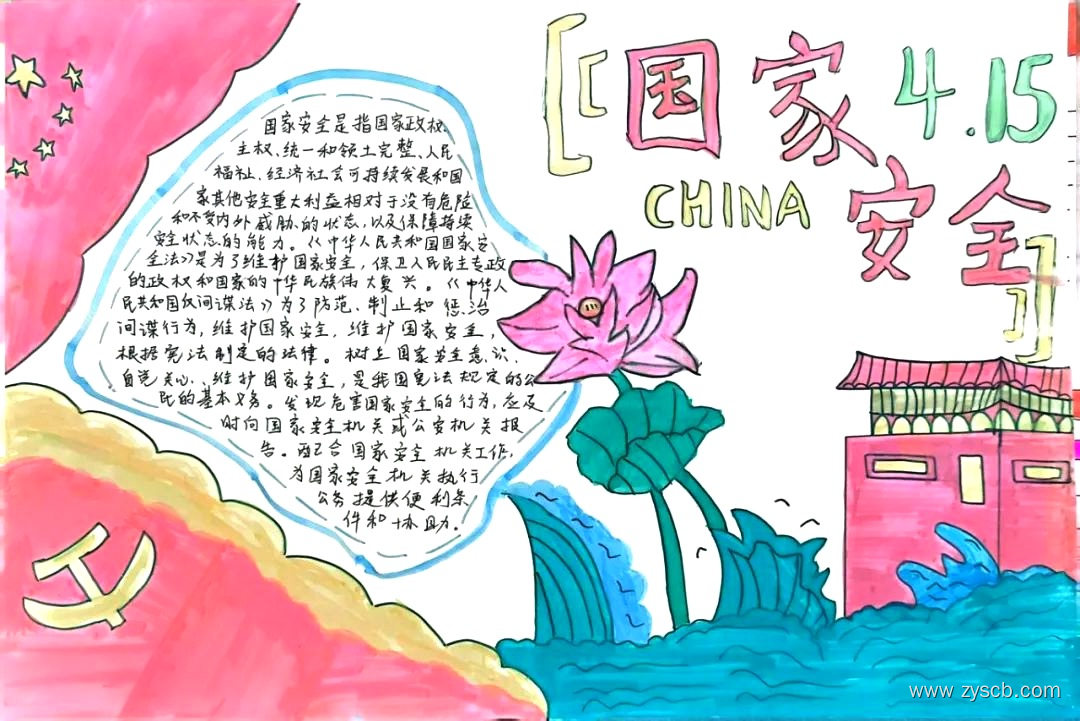 国家
4.15
CHINA
安全
国家安全是指国家政权、
主权、统一和领土完整、人民
福祉、经济社会可持续发展和国
家其他安全重大利益相对于没有危险
和不受内外威胁的状态,以及保障持续
安全状态的能力。《中华人民共和国国家安
全法》是为了维护国家安全,保卫人民民主专政
的政权和国家的中华民族伟大复兴。《中华人
民共和国反间谍法》为了防范、制止和惩治
间谍行为,维护国家安全,维护国家安全,
根据宪法制定的法律。树立国家安全意识、
自觉关心、维护国家安全,是我国宪法规定的公
民的基本义务。发现危害国家安全的行为,应及
时向国家安全机关或公安机关报
告。配合国家安全机关工作,
为国家安全机关执行
公务提供便利条
件和协助。
www.zyscb.com